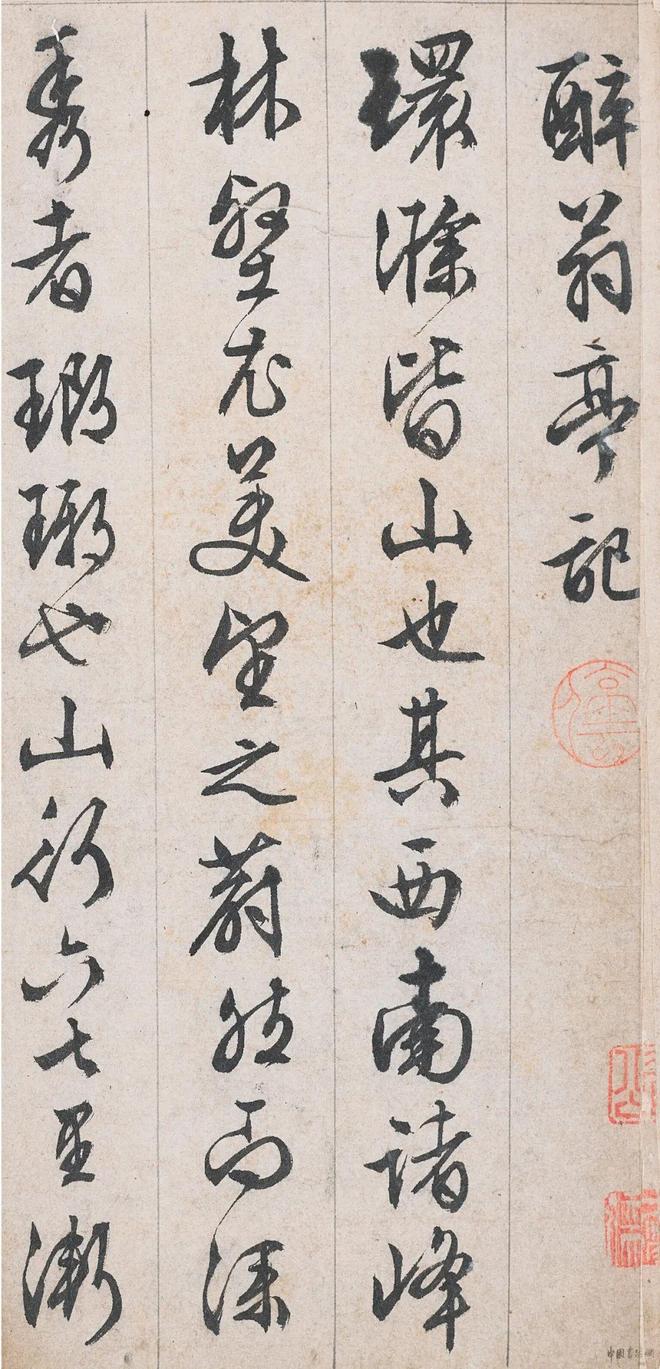 醉翁亭記
環滁皆山也其西南諸峰
林壑尤美望之蔚然而深
秀者瑯琊也山行六七里漸